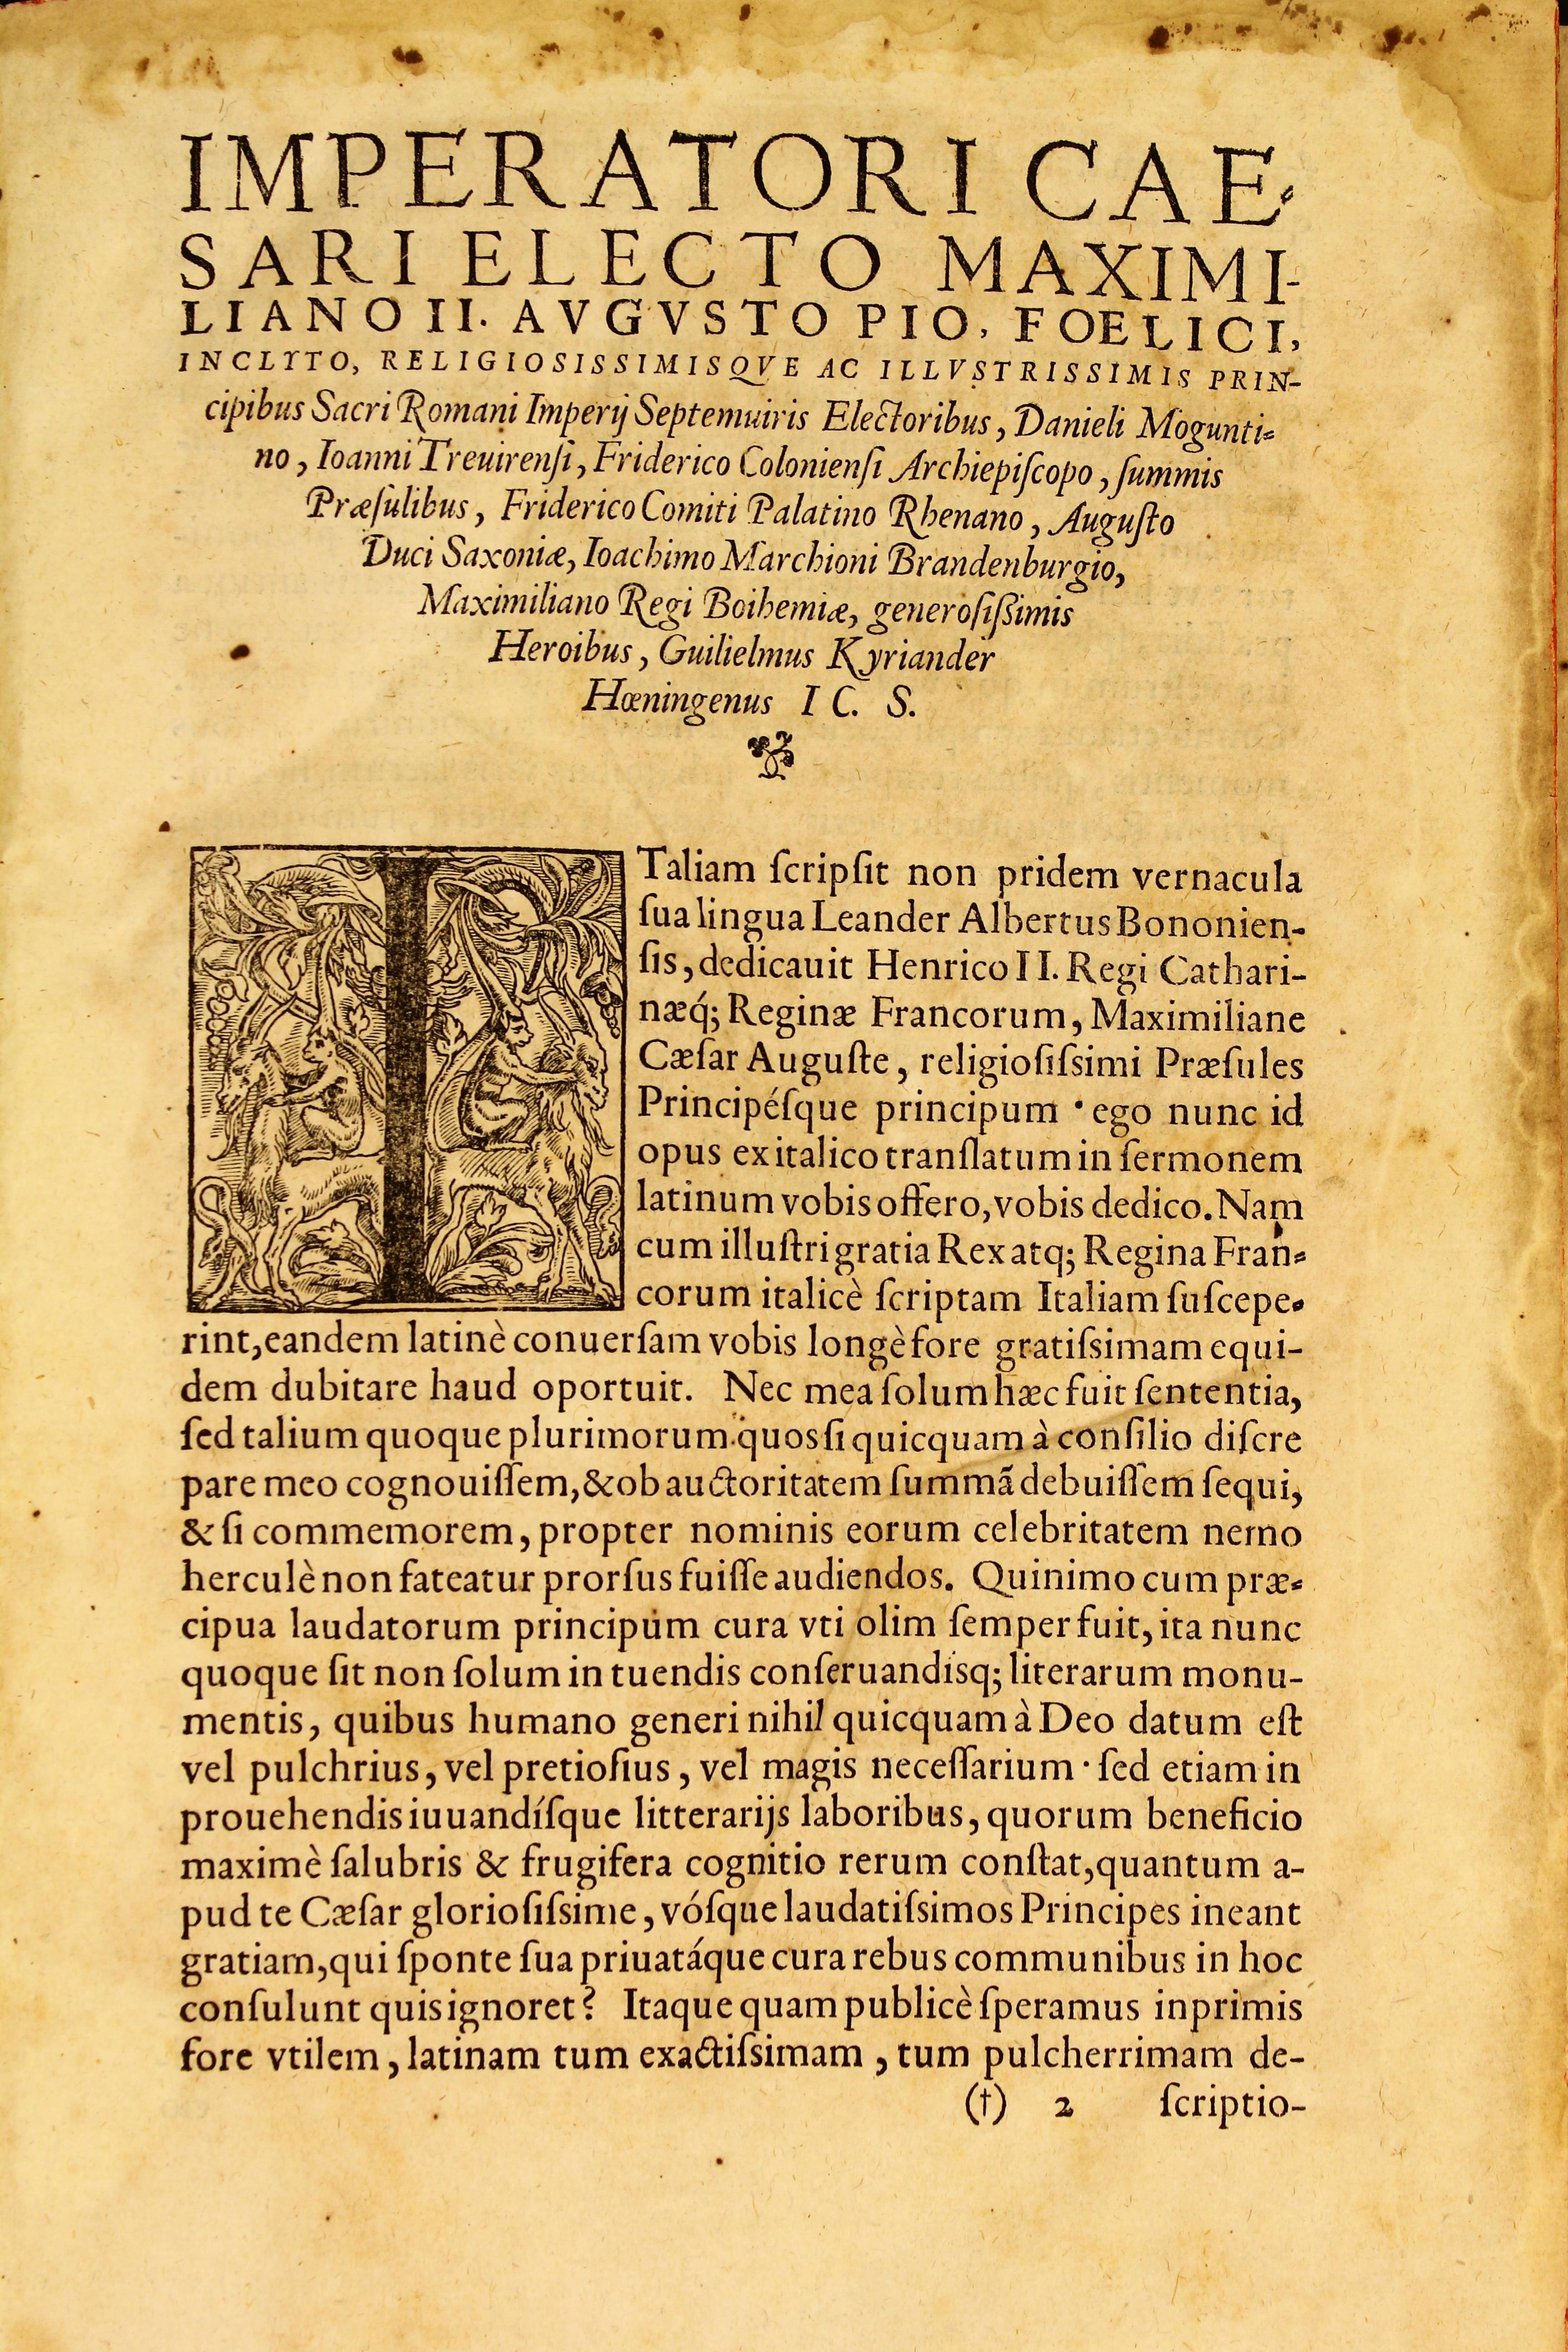 IMPERATORI CAE-
SARI ELECTO MAXIMI-
LIANO II. AVGVSTO PIO, FOELICI,
INCLYTO, RELIGIOSISSIMISQVE AC ILLVSTRISSIMIS PRIN-
cipibus Sacri Romani Imperij Septemuiris Electoribus, Danieli Mogunti-
no, Ioanni Treuirenſi, Friderico Colonienſi Archiepiſcopo, ſummis
Præſulibus, Friderico Comiti Palatino Rhenano, Auguſto
Duci Saxoniæ, Ioachimo Marchioni Brandenburgio,
Maximiliano Regi Boihemiæ, generoſiſſimis
Heroibus, Guilielmus Kyriander
Hœningenus I C. S.
ITaliam ſcripſit non pridem vernacula
ſua lingua Leander Albertus Bononien-
ſis, dedicauit Henrico II. Regi Cathari-
næq́; Reginæ Francorum, Maximiliane
Cæſar Auguſte, religioſiſsimi Præſules
Principéſque principum · ego nunc id
opus ex italico tranſlatum in ſermonem
latinum vobis offero, vobis dedico. Nam
cum illuſtri gratia Rex atq; Regina Fran-
corum italicè ſcriptam Italiam ſuſcepe-
rint, eandem latinè conuerſam vobis longè fore gratiſsimam equi-
dem dubitare haud oportuit. Nec mea ſolum hæc fuit ſententia,
ſed talium quoque plurimorum. quos ſi quicquam à conſilio diſcre
pare meo cognouiſſem, & ob auctoritatem ſummã debuiſſem ſequi,
& ſi commemorem, propter nominis eorum celebritatem nemo
herculè non fateatur prorſus fuiſſe audiendos. Quinimo cum præ-
cipua laudatorum principum cura vti olim ſemper fuit, ita nunc
quoque ſit non ſolum in tuendis conſeruandisq; literarum monu-
mentis, quibus humano generi nihil quicquam à Deo datum eſt
vel pulchrius, vel pretioſius, vel magis neceſſarium · ſed etiam in
prouehendis iuuandíſque litterarijs laboribus, quorum beneficio
maximè ſalubris & frugifera cognitio rerum conſtat, quantum a-
pud te Cæſar glorioſiſsime, vóſque laudatiſsimos Principes ineant
gratiam, qui ſponte ſua priuatáque cura rebus communibus in hoc
conſulunt quis ignoret? Itaque quam publicè ſperamus inprimis
fore vtilem, latinam tum exactiſsimam, tum pulcherrimam de-
(†) 2 ſcriptio-